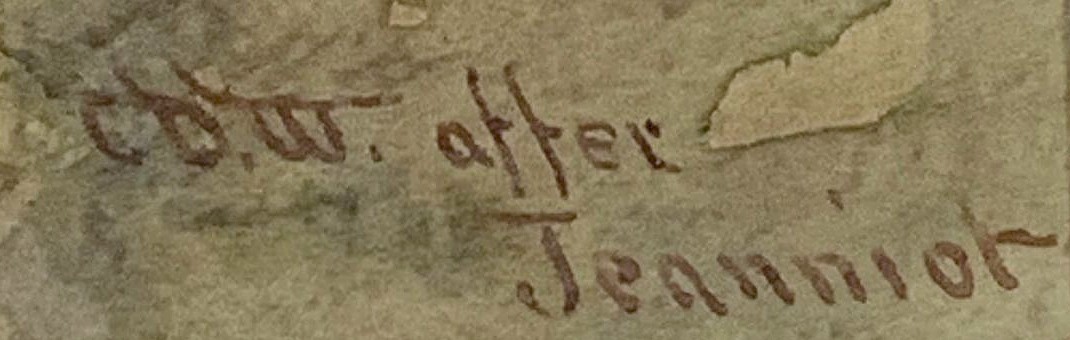 C.D.W. after
Jeanniot